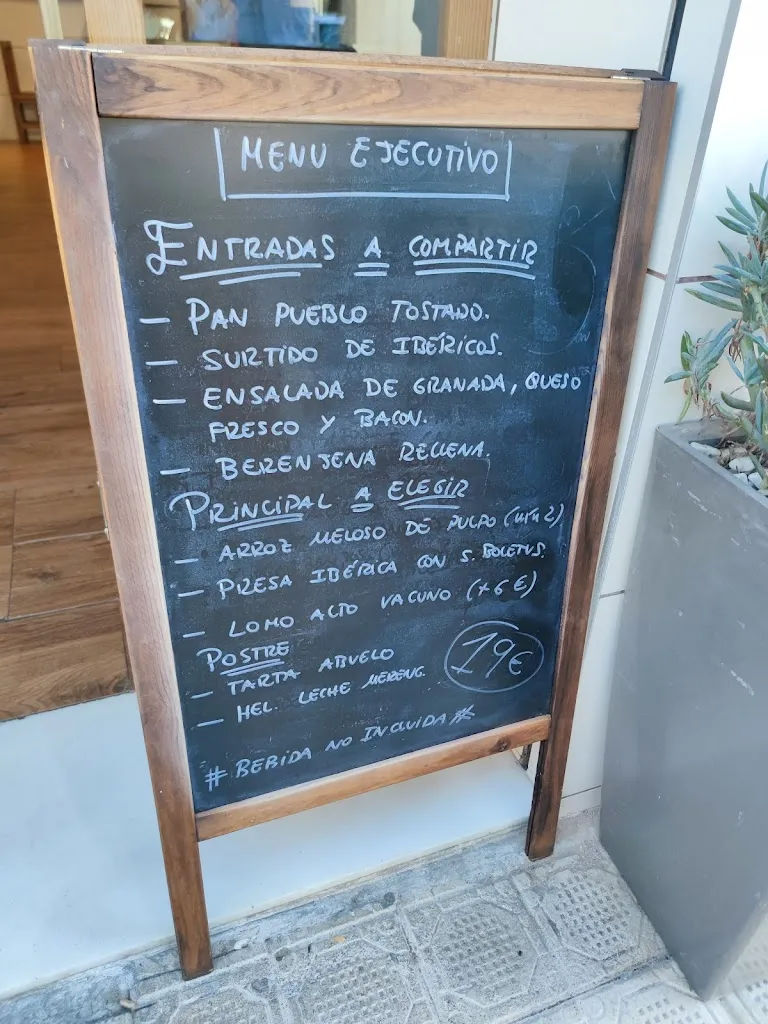 MENU EJECUTIVO
ENTRADAS A COMPARTIR
- PAN PUEBLO TOSTADO.
- SURTIDO DE IBÉRICOS.
- ENSALADA DE GRANADA, QUESO
FRESCO Y BACON.
- BERENJENA RELLENA.
PRINCIPAL A ELEGIR
- ARROZ MELOSO DE PULPO (MIN 2)
- PRESA IBÉRICA CON S. BOLETUS.
- LOMO ALTO VACUNO (+6€)
POSTRE
- TARTA ABUELO
- HEL. LECHE MERENG.
19€
# BEBIDA NO INCLUIDA #